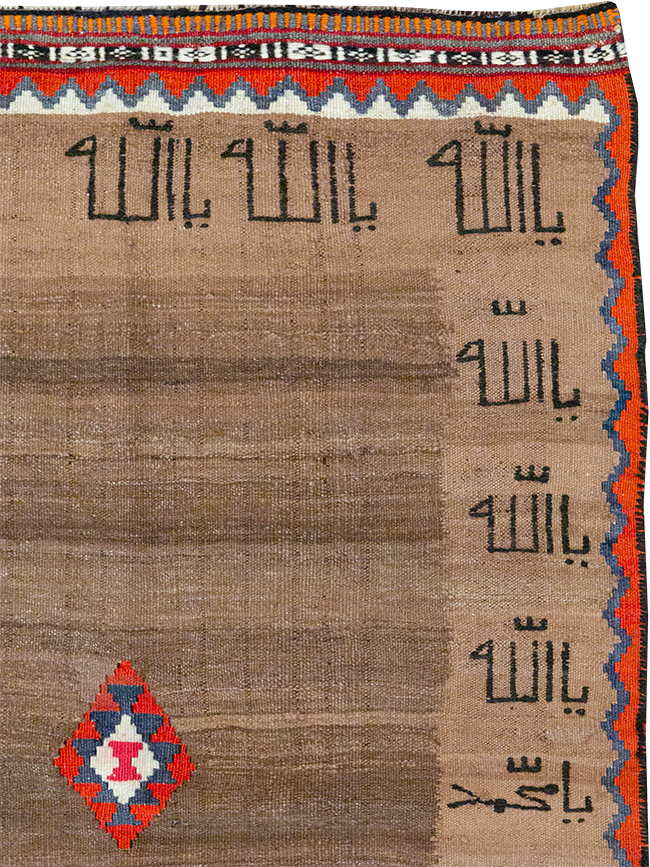 يا اللّه يا اللّه يا اللّه
يا اللّه
يا اللّه
يا اللّه
يا